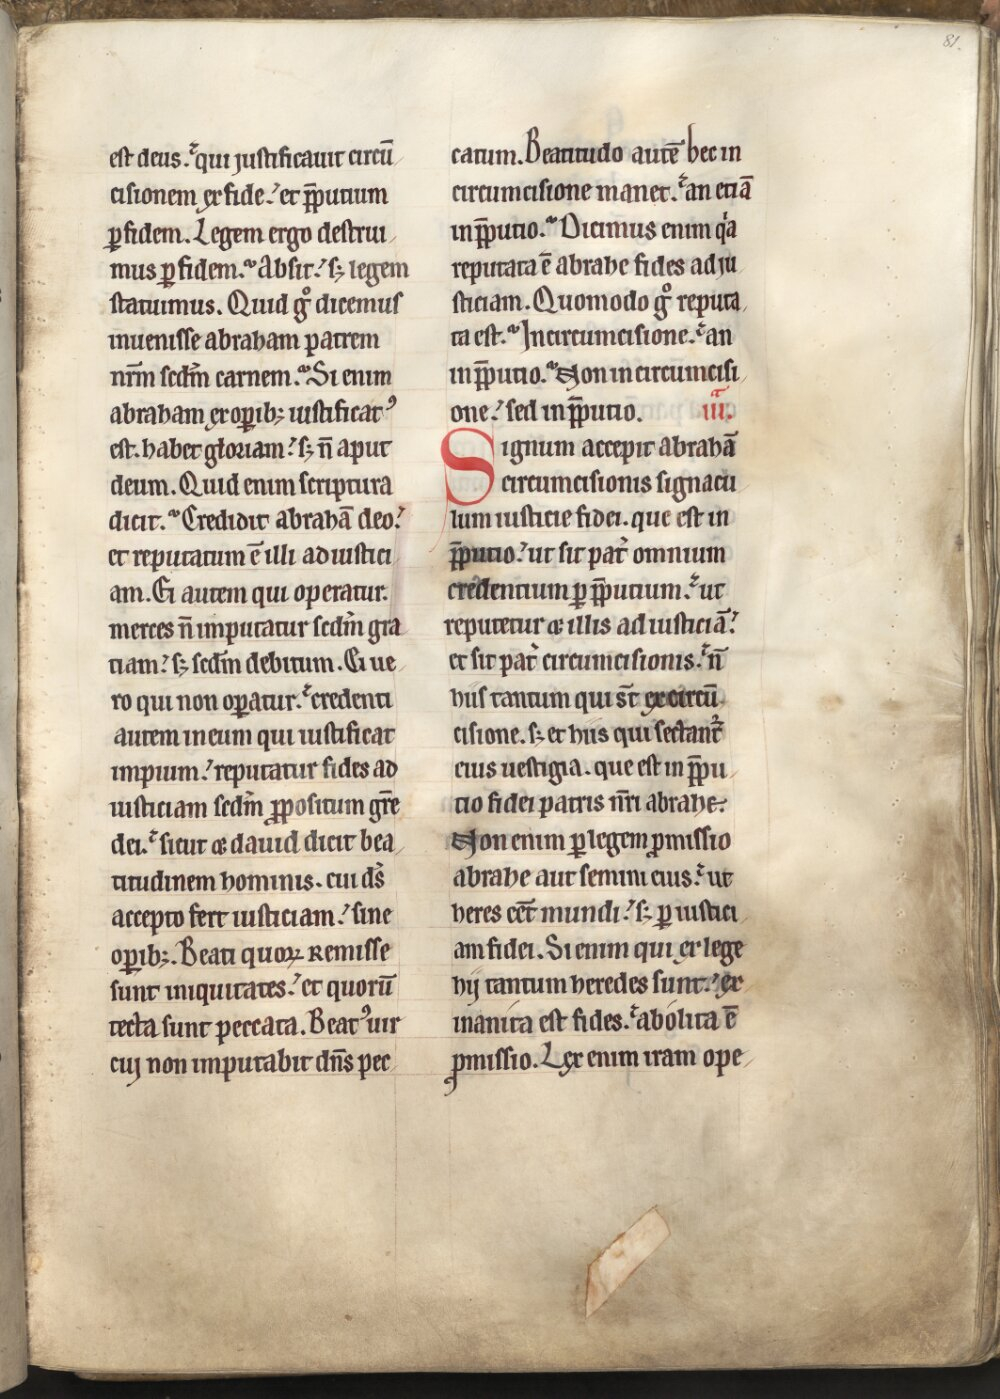 81.
est deus. qui justificauit circū
cisionem ex fide. et p̄putium
ꝑ fidem. Legem ergo destrui
mus ꝑ fidem. Absit. sꝫ legem
statuimus. Quid gͦ dicemus
inuenisse abraham patrem
nr̄m scdm̄ carnem. Si enim
abraham ex oꝑibꝫ iustificatꝰ
est. habet gloriam. sꝫ n̄ aput
deum. Quid enim scriptura
dicit. Credidit abrahā deo.
et reputatum ē illi ad iustici
am. Ei autem qui operatur.
merces n̄ imputatur scdm̄ gra
tiam. sꝫ scdm̄ debitum. Ei ue
ro qui non oꝑatur. credenti
autem in eum qui iustificat
impium. reputatur fides ad
iusticiam scdm̄ ꝓpositum gr̄e
dei. sicut ⁊ dauid dicit bea
titudinem hominis. cui ds̄
accepto fert iusticiam. sine
oꝑibꝫ. Beati quoꝝ remisse
sunt iniquitates. et quorū
tecta sunt peccata. Beatꝰ uir
cuj non imputabit dn̄s pec
catum. Beatitudo autē hec in
circumcisione manet. an etiā
in p̄putio. Dicimus enim qͣa
reputata ē abrahe fides ad ju
sticiam. Quomodo gͦ reputa
ta est. In circumcisione. an
in p̄putio. Non in circumcisi
one. sed in p̄putio. iii.
Signum accepit abrahā
circumcisionis signacu
lum iusticie fidei. que est in
p̄putio. ut sit pat̄ omnium
credentium ꝑ p̄putium. ut
reputetur ⁊ illis ad iusticiā.
et sit pat̄ circumcisionis. n̄
hiis tantum qui st̄ ex circū
cisione. sꝫ et hiis qui sectant᷑
eius uestigia. que est in p̄pu
tio fidei patris nr̄i abrahe.
Non enim ꝑ legem ꝓmissio
abrahe aut semini eius. ut
heres eēt mundi. sꝫ ꝑ iustici
am fidei. Si enim qui ex lege
hij tantum heredes sunt. ex
inanita est fides. abolita ē
ꝓmissio. Lex enim iram ope